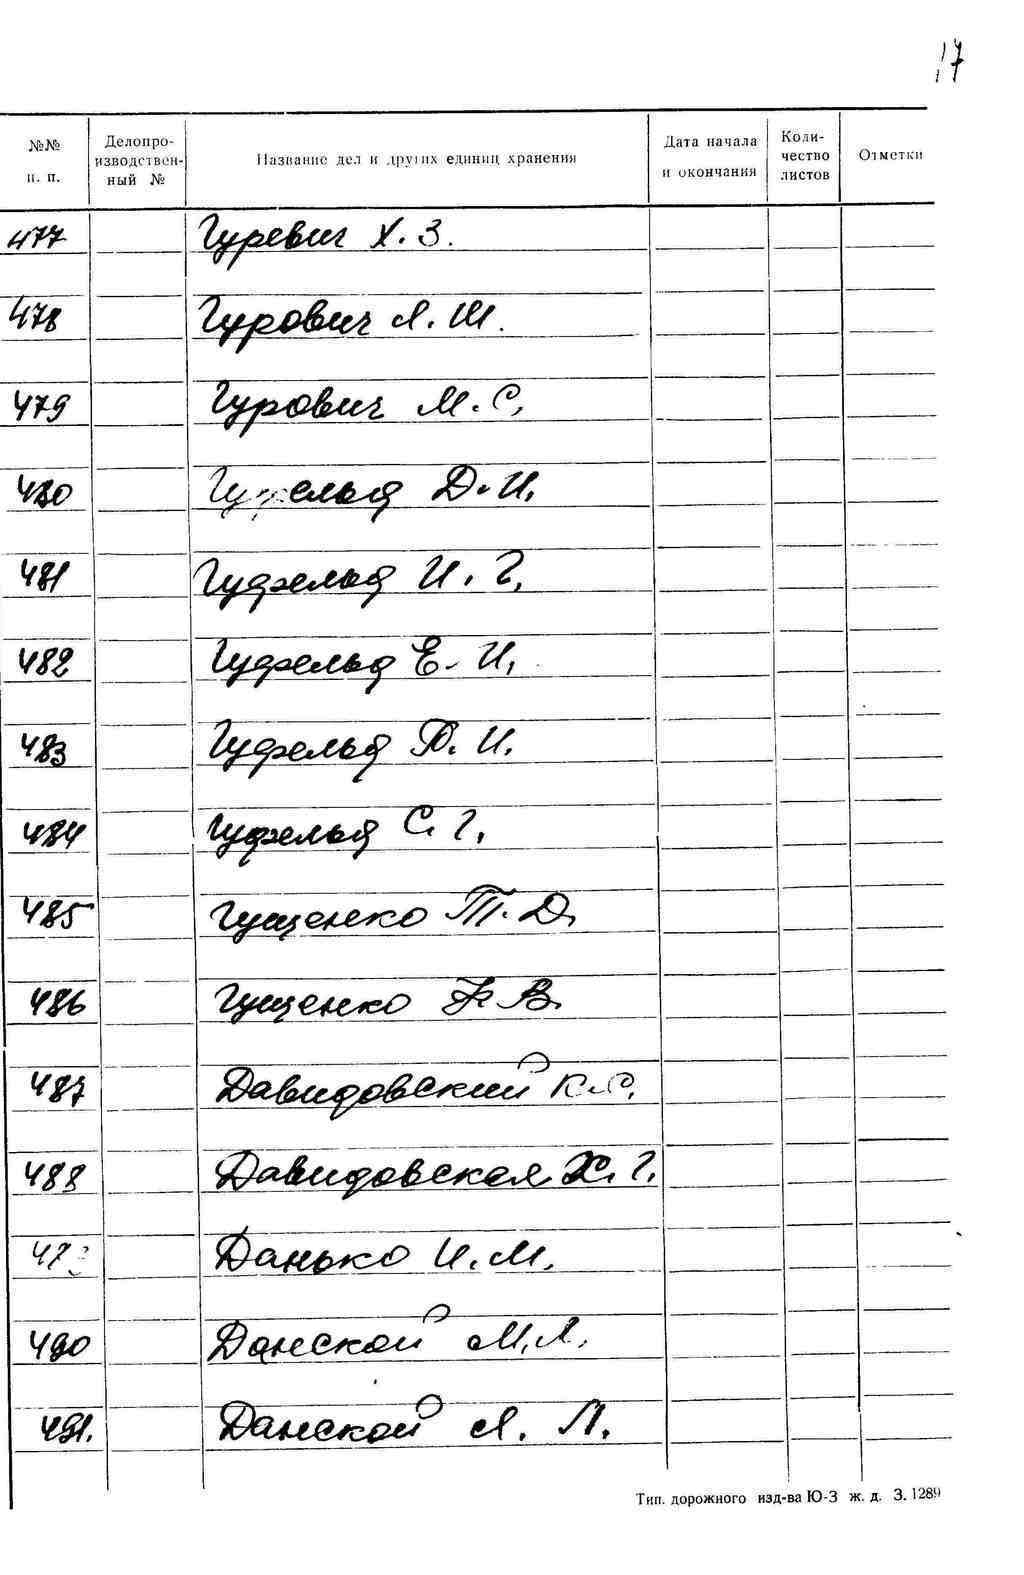 17
№№ п. п. Делопроизводственный № Название дел и других единиц хранения Дата начала и окончания Количество листов Отметки
477 Гуревич Х. З.
478 Гурович Л. Ш.
479 Гурович М. С.
480 Гуфельд Д. И.
481 Гуфельд И. Г.
482 Гуфельд Е. И.
483 Гуфельд И.
484 Гуфельд С. Г.
485 Гущенко Т. Д.
486 Гущенко В.
487 Давидовский К. С.
488 Давидовская Х. Г.
Данько И. М.
490 Данской М. Л.
491. Данской Л. Л.
Тип. дорожного изд-ва Ю-З ж. д. З. 1289